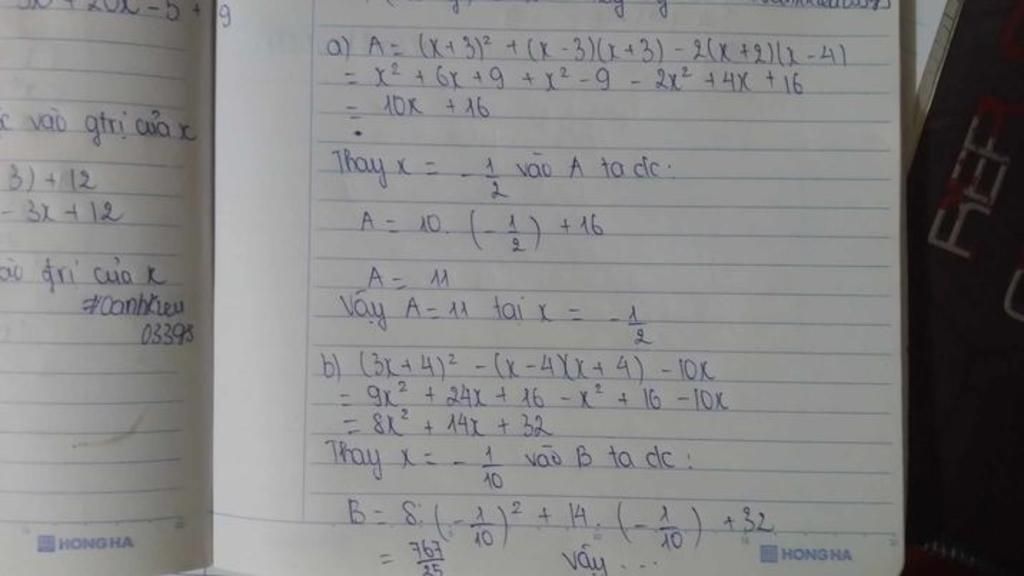 + 20x - 5 + 9
vào gtrị của x
3) + 12
- 3x + 12
trị của x
03393
a) A = (x+3)² + (x-3)(x+3) - 2(x+2)(x-4)
= x² + 6x + 9 + x² - 9 - 2x² + 4x + 16
= 10x + 16
Thay x = -1/2 vào A ta dc:
A = 10. (-1/2) + 16
A = 11
Vậy A = 11 tại x = -1/2
b) (3x+4)² - (x-4)(x+4) - 10x
= 9x² + 24x + 16 - x² + 16 - 10x
= 8x² + 14x + 32
Thay x = -1/10 vào B ta dc:
B = 8. (-1/10)² + 14. (-1/10) + 32
= 767/25 Vậy ...
HONG HA
HONG HA